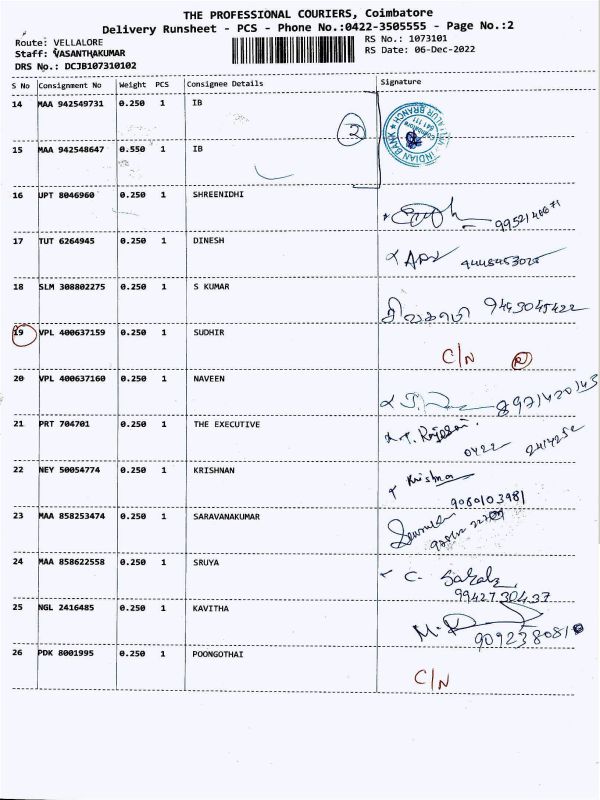 THE PROFESSIONAL COURIERS, Coimbatore
Delivery Runsheet - PCS - Phone No.:0422-3505555 - Page No.:2
Route: VELLALORE
RS No.: 1073101
Staff: VASANTHAKUMAR
RS Date: 06-Dec-2022
DRS No.: DCJB107310102
S No Consignment No Weight PCS Consignee Details Signature
14 MAA 942549731 0.250 1 IB
2
INDIAN BANK
15 MAA 942548647 0.550 1 IB
16 UPT 8046960 0.250 1 SHREENIDHI
17 TUT 6264945 0.250 1 DINESH
18 SLM 308802275 0.250 1 S KUMAR
9443045422
19 VPL 400637159 0.250 1 SUDHIR
C/N
20 VPL 400637160 0.250 1 NAVEEN
8971420143
21 PRT 704701 0.250 1 THE EXECUTIVE
0422 2414252
22 NEY 50054774 0.250 1 KRISHNAN
Krishna
9080103981
23 MAA 858253474 0.250 1 SARAVANAKUMAR
24 MAA 858622558 0.250 1 SRUYA
9942730437
25 NGL 2416485 0.250 1 KAVITHA
26 PDK 8001995 0.250 1 POONGOTHAI
C/N